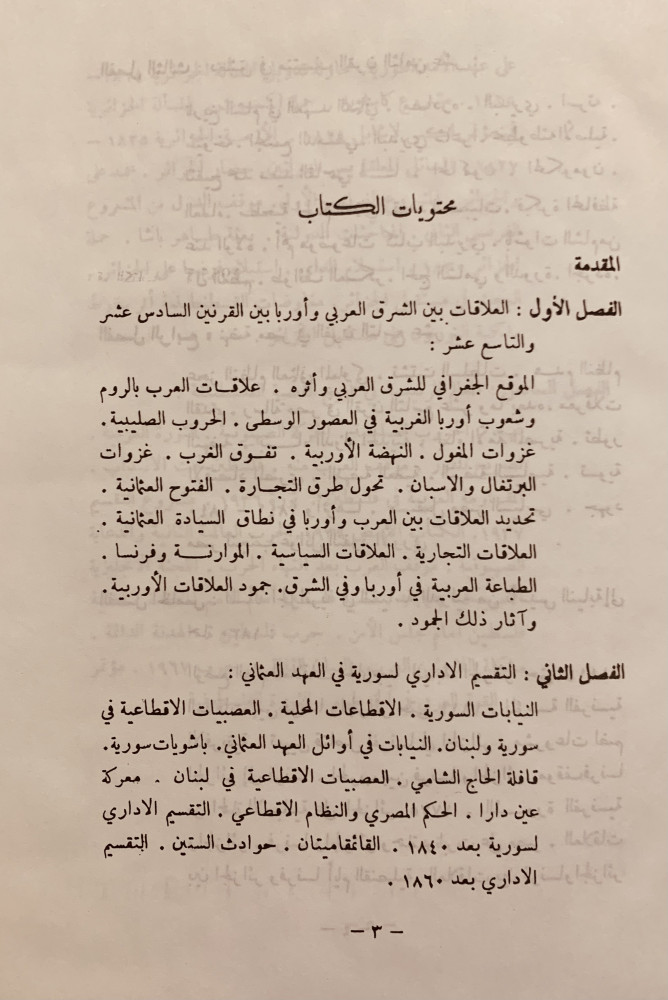 محتويات الكتاب
المقدمة
الفصل الأول : العلاقات بين الشرق العربي وأوربا بين القرنين السادس عشر
والتاسع عشر :
الموقع الجغرافي للشرق العربي وأثره . علاقات العرب بالروم
وشعوب أوربا الغربية في العصور الوسطى . الحروب الصليبية .
غزوات المغول . النهضة الأوربية . تفوق الغرب . غزوات
البرتغال والاسبان . تحول طرق التجارة . الفتوح العثمانية .
تحديد العلاقات بين العرب وأوربا في نطاق السيادة العثمانية .
العلاقات التجارية . العلاقات السياسية . الموارنة وفرنسا .
الطباعة العربية في أوربا وفي الشرق . جمود العلاقات الأوربية .
وآثار ذلك الجمود .
الفصل الثاني : التقسيم الاداري لسورية في العهد العثماني :
النيابات السورية . الاقطاعات المحلية . العصبيات الاقطاعية في
سورية ولبنان . النيابات في أوائل العهد العثماني . باشويات سورية .
قافلة الحاج الشامي . العصبيات الاقطاعية في لبنان . معركة
عين دارا . الحكم المصري والنظام الاقطاعي . التقسيم الاداري
لسورية بعد ١٨٤٠ . القائقاميتان . حوادث الستين . التقسيم
الاداري بعد ١٨٦٠ .
– ٣ –